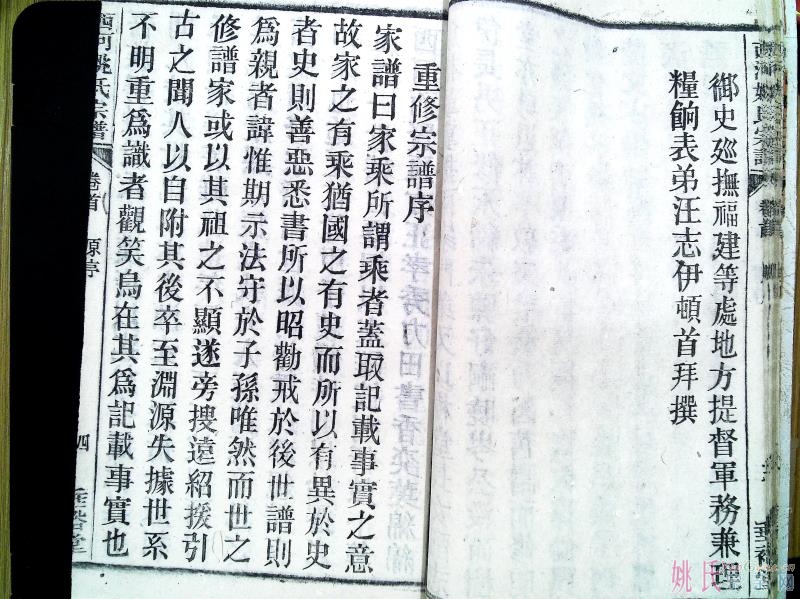 御史廵撫福建等處地方提督軍務兼理
糧餉表弟汪志伊頓首拜撰
重修宗譜序
家譜曰家乘所謂乘者蓋取記載事實之意
故家之有乘猶國之有史而所以有異於史
者史則善惡悉書所以昭勸戒於後世譜則
爲親者諱惟期示法守於子孫唯然而世之
修譜家或以其祖之不顯遂旁搜遠紹援引
古之聞人以自附其後卒至淵源失據世系
不明重爲識者觀笑烏在其爲記載事實也
西河姚氏宗譜
卷首
原序
四
姚氏